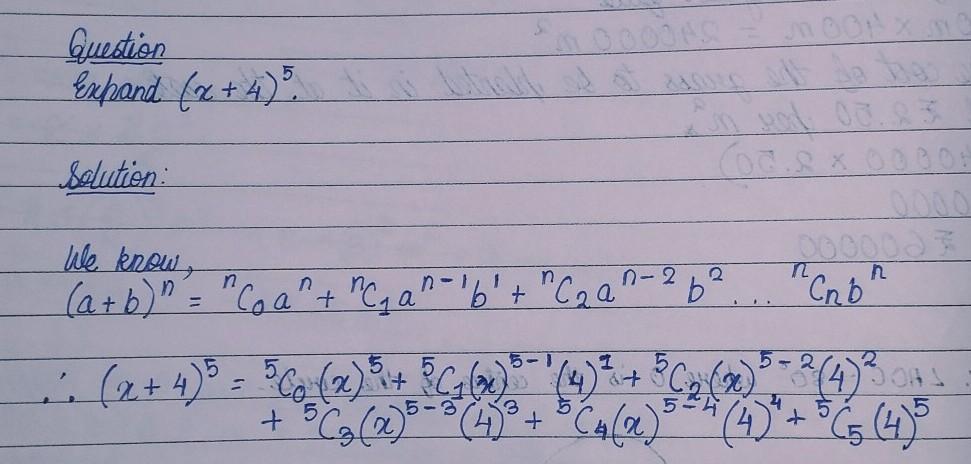 Question
Expand (x + 4)⁵.
Solution:
We know,
(a+b)ⁿ = ⁿC₀aⁿ + ⁿC₁aⁿ⁻¹b¹ + ⁿC₂aⁿ⁻²b² ... ⁿCₙbⁿ
∴ (x + 4)⁵ = ⁵C₀(x)⁵ + ⁵C₁(x)⁵⁻¹(4)¹ + ⁵C₂(x)⁵⁻²(4)²
+ ⁵C₃(x)⁵⁻³(4)³ + ⁵C₄(x)⁵⁻⁴(4)⁴ + ⁵C₅(4)⁵